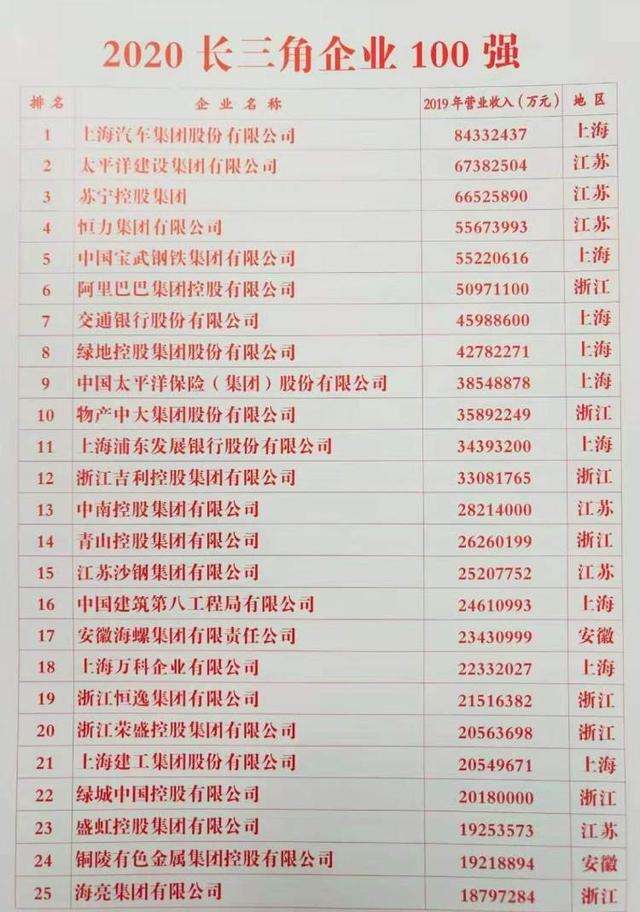 2020 长三角企业 100 强
排名 企业名称 2019年营业收入(万元) 地区
1 上海汽车集团股份有限公司 84332437 上海
2 太平洋建设集团有限公司 67382504 江苏
3 苏宁控股集团 66525890 江苏
4 恒力集团有限公司 55673993 江苏
5 中国宝武钢铁集团有限公司 55220616 上海
6 阿里巴巴集团控股有限公司 50971100 浙江
7 交通银行股份有限公司 45988600 上海
8 绿地控股集团股份有限公司 42782271 上海
9 中国太平洋保险(集团)股份有限公司 38548878 上海
10 物产中大集团股份有限公司 35892249 浙江
11 上海浦东发展银行股份有限公司 34393200 上海
12 浙江吉利控股集团有限公司 33081765 浙江
13 中南控股集团有限公司 28214000 江苏
14 青山控股集团有限公司 26260199 浙江
15 江苏沙钢集团有限公司 25207752 江苏
16 中国建筑第八工程局有限公司 24610993 上海
17 安徽海螺集团有限责任公司 23430999 安徽
18 上海万科企业有限公司 22332027 上海
19 浙江恒逸集团有限公司 21516382 浙江
20 浙江荣盛控股集团有限公司 20563698 浙江
21 上海建工集团股份有限公司 20549671 上海
22 绿城中国控股有限公司 20180000 浙江
23 盛虹控股集团有限公司 19253573 江苏
24 铜陵有色金属集团控股有限公司 19218894 安徽
25 海亮集团有限公司 18797284 浙江